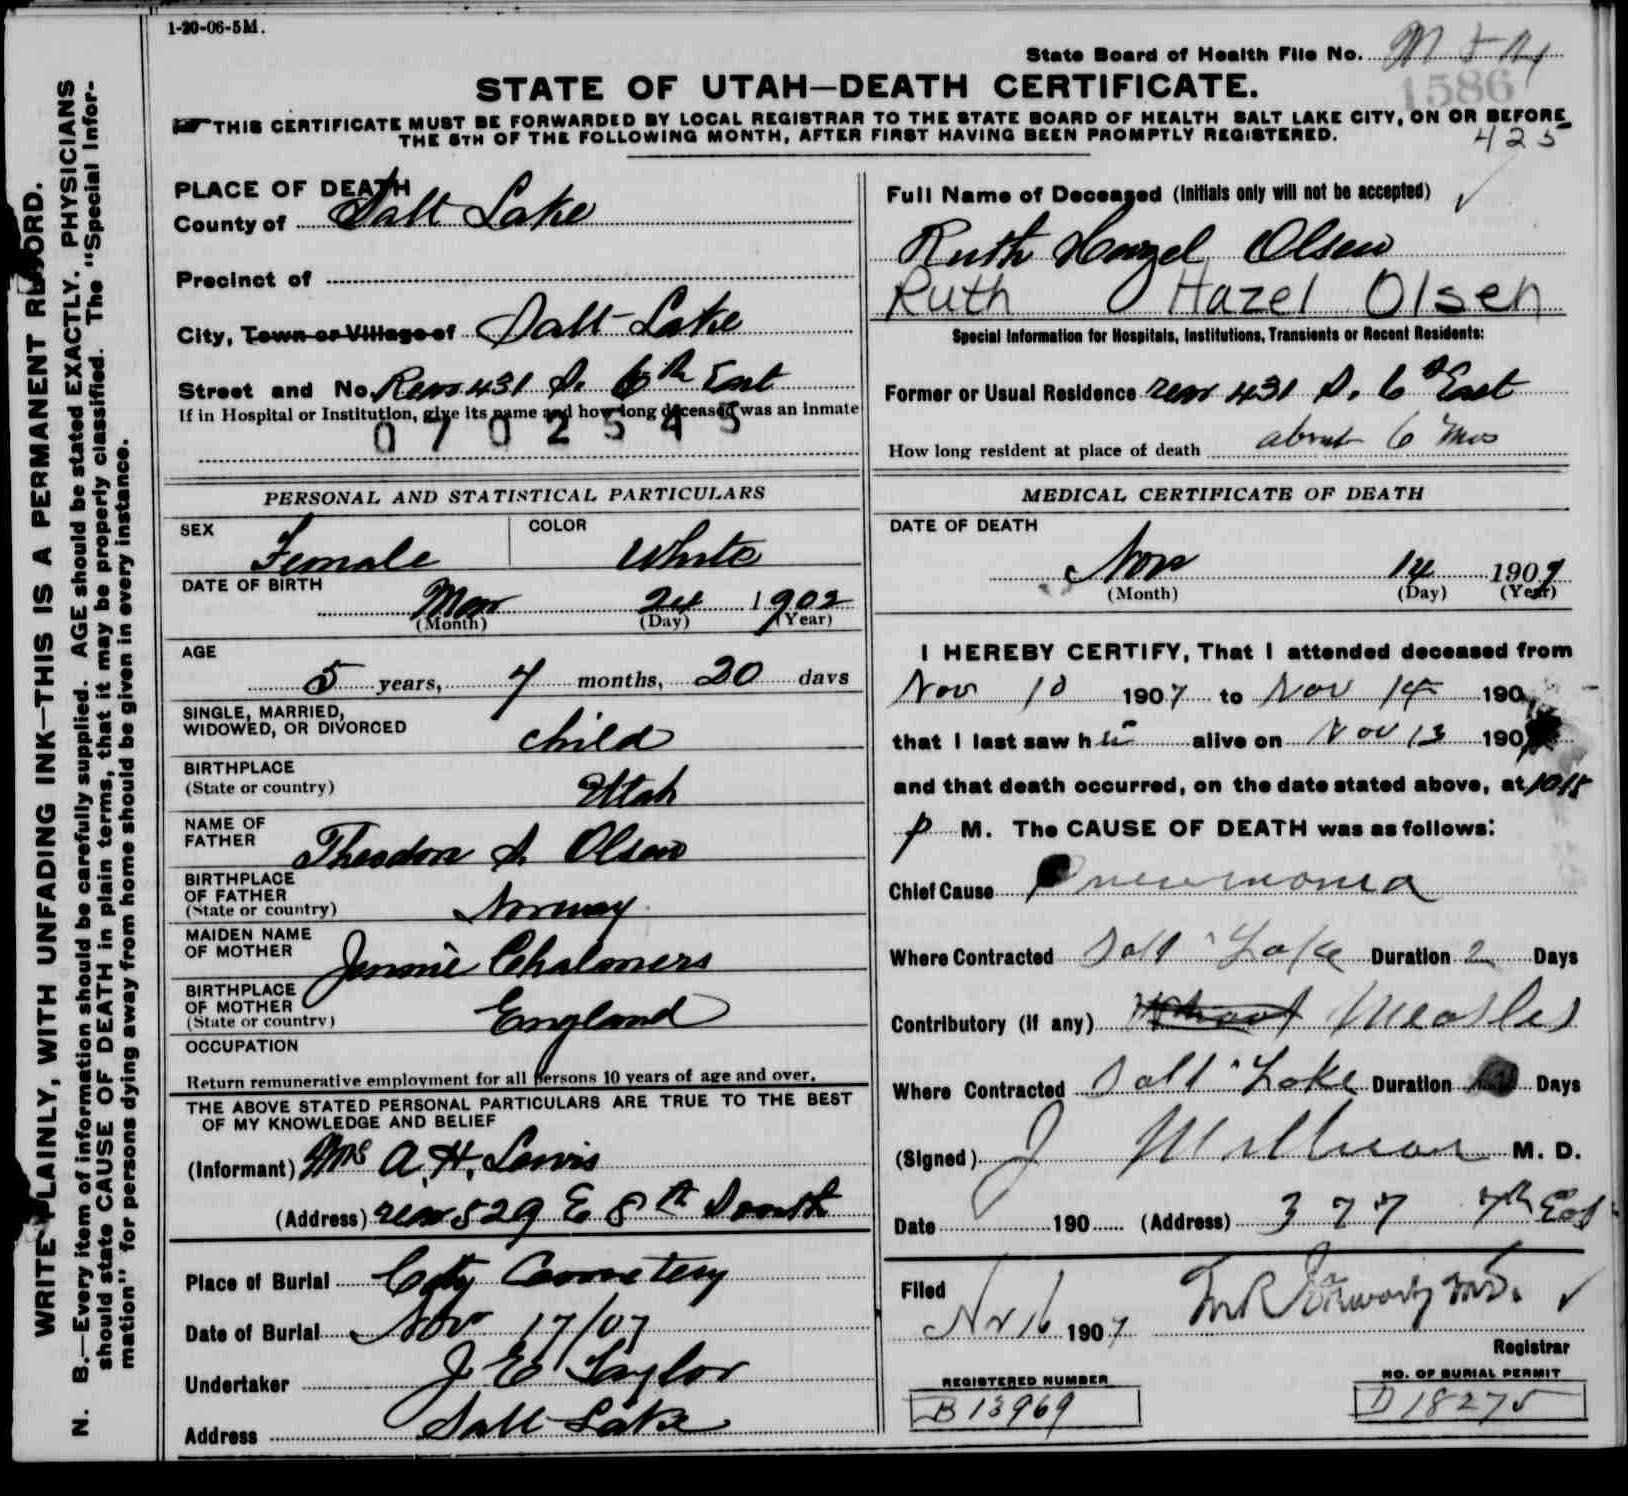 1-20-06-5M.
State Board of Health File No.
1586
STATE OF UTAH—DEATH CERTIFICATE.
THIS CERTIFICATE MUST BE FORWARDED BY LOCAL REGISTRAR TO THE STATE BOARD OF HEALTH SALT LAKE CITY, ON OR BEFORE
THE 5TH OF THE FOLLOWING MONTH, AFTER FIRST HAVING BEEN PROMPTLY REGISTERED.
425
WRITE PLAINLY, WITH UNFADING INK—THIS IS A PERMANENT RECORD.
N. B.—Every item of information should be carefully supplied. AGE should be stated EXACTLY. PHYSICIANS
should state CAUSE OF DEATH in plain terms, that it may be properly classified. The "Special Infor-
mation" for persons dying away from home should be given in every instance.
PLACE OF DEATH
County of Salt Lake
Precinct of
City, Town or Village of Salt Lake
Street and No. Rear 431 S. 6th East
If in Hospital or Institution, give its name and how long deceased was an inmate
0702545
Full Name of Deceased (Initials only will not be accepted)
Ruth Hazel Olsen
Ruth Hazel Olsen
Special Information for Hospitals, Institutions, Transients or Recent Residents:
Former or Usual Residence rear 431 S. 6th East
How long resident at place of death about 6 mos
PERSONAL AND STATISTICAL PARTICULARS
SEX Female
COLOR White
DATE OF BIRTH
Mar 24 1902
(Month) (Day) (Year)
AGE
5 years, 7 months, 20 days
SINGLE, MARRIED,
WIDOWED, OR DIVORCED child
BIRTHPLACE
(State or country) Utah
NAME OF
FATHER Theodore S. Olsen
BIRTHPLACE
OF FATHER
(State or country) Norway
MAIDEN NAME
OF MOTHER Jennie Chalmers
BIRTHPLACE
OF MOTHER
(State or country) England
OCCUPATION
Return remunerative employment for all persons 10 years of age and over.
THE ABOVE STATED PERSONAL PARTICULARS ARE TRUE TO THE BEST
OF MY KNOWLEDGE AND BELIEF
(Informant) Mrs A. H. Lewis
(Address) rear 529 E 8th South
Place of Burial City Cemetery
Date of Burial Nov 17/07
Undertaker J E Taylor
Address Salt Lake
MEDICAL CERTIFICATE OF DEATH
DATE OF DEATH
Nov 14 1907
(Month) (Day) (Year)
I HEREBY CERTIFY, That I attended deceased from
Nov 10 1907 to Nov 14 190
that I last saw h alive on Nov 13 190
and that death occurred, on the date stated above, at 1015
p M. The CAUSE OF DEATH was as follows:
Chief Cause Pneumonia
Where Contracted Salt Lake Duration 2 Days
Contributory (if any) Measles
Where Contracted Salt Lake Duration Days
(Signed) J M. D.
Date 190 (Address) 377 7th East
Filed
Nov 16 1907
Registrar
REGISTERED NUMBER
B 13969
NO. OF BURIAL PERMIT
D 18275